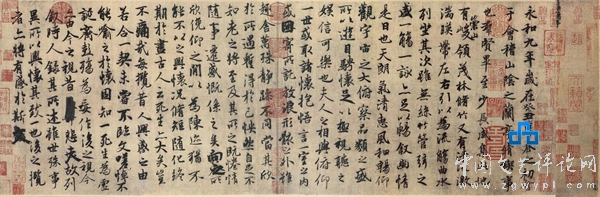 永和九年歲在癸丑暮春之初會
于會稽山陰之蘭亭脩稧事
也群賢畢至少長咸集此地
有崇山峻領茂林脩竹又有清流激
湍暎帶左右引以為流觴曲水
列坐其次雖無絲竹管弦之
盛一觴一詠亦足以暢敘幽情
是日也天朗氣清惠風和暢仰
觀宇宙之大俯察品類之盛
所以遊目騁懷足以極視聽之
娛信可樂也夫人之相與俯仰
一世或取諸懷抱悟言一室之內
或因寄所託放浪形骸之外雖
趣舍萬殊靜躁不同當其欣
於所遇蹔得於己怏然自足不
知老之將至及其所之既惓情
隨事遷感慨係之矣向之所
欣俛仰之閒以為陳迹猶不
能不以之興懷況脩短隨化終
期於盡古人云死生亦大矣豈
不痛哉每攬昔人興感之由
若合一契未嘗不臨文嗟悼不
能喻之於懷固知一死生為虛
誕齊彭殤為妄作後之視今
亦由今之視昔悲夫故列
敘時人錄其所述雖世殊事
異所以興懷其致一也後之攬
者亦將有感於斯文
中国文艺评论网
www.zgwypl.com